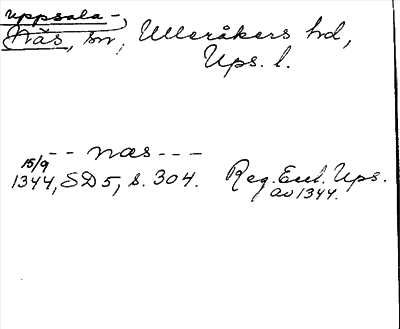 Uppsala-
Näs, sn, Ulleråkers hd,
Ups. l.
-- nas ---
15/9
1344, SD 5, s. 304. Reg. Eccl. Ups.
av 1344.